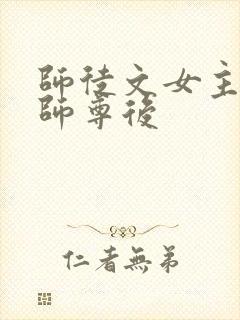 師徒文女主
師尊後
仁者無弟